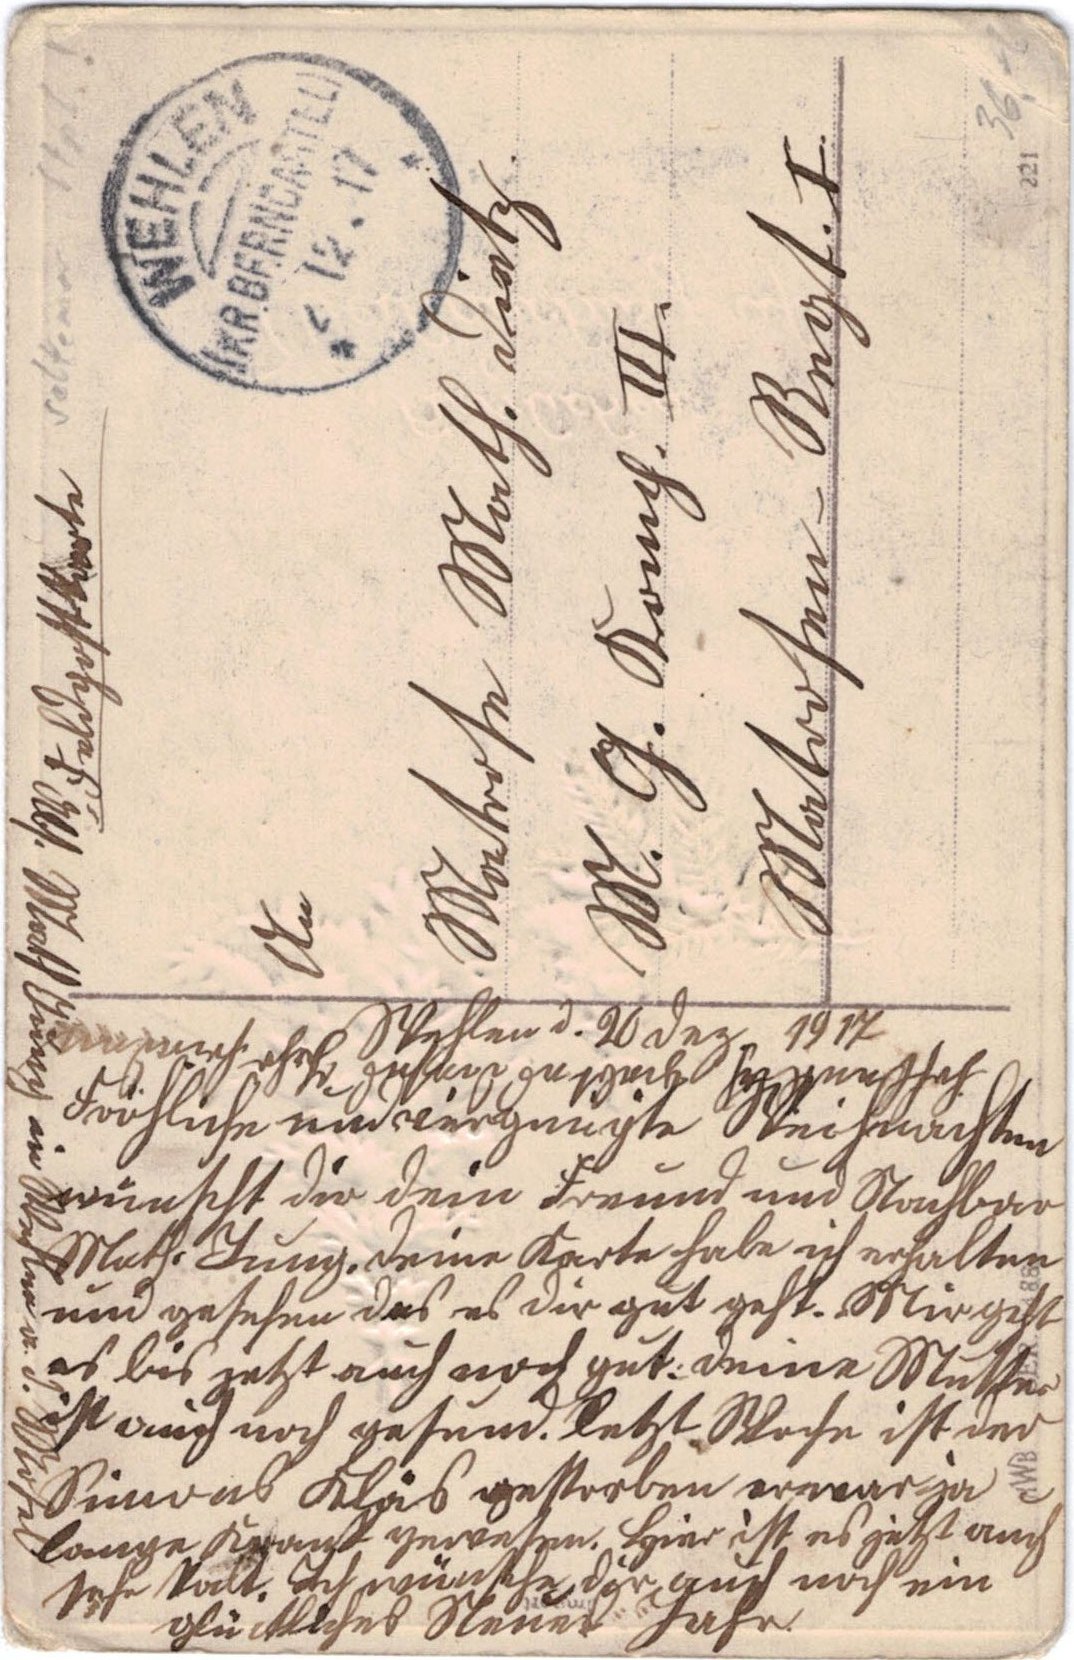 WEHLEN
(KR. BERNCASTEL)
12.17
An
Matrose Math. Dietz
M. G. Komp. III.
Matrosen-Regt. I
36
221
Wehlen d. 20 Dez. 1917
Fröhliche und vergnügte Weihnachten
wünscht dir dein Freund und Nachbar
Math. Jung. Deine Karte habe ich erhalten
und gesehen das es dir gut geht. Mir geht
es bis jetzt auch noch gut. Deine Mutter
ist auch noch gesund. Letzt Woche ist der
Simons Kläs gestorben er war ja
lange Krank gewesen. Hier ist es jetzt auch
sehr kalt. Ich wünsche dir auch noch ein
glückliches Neues Jahr.
Abs. Math Jung in Wehlen a. d. Mosel